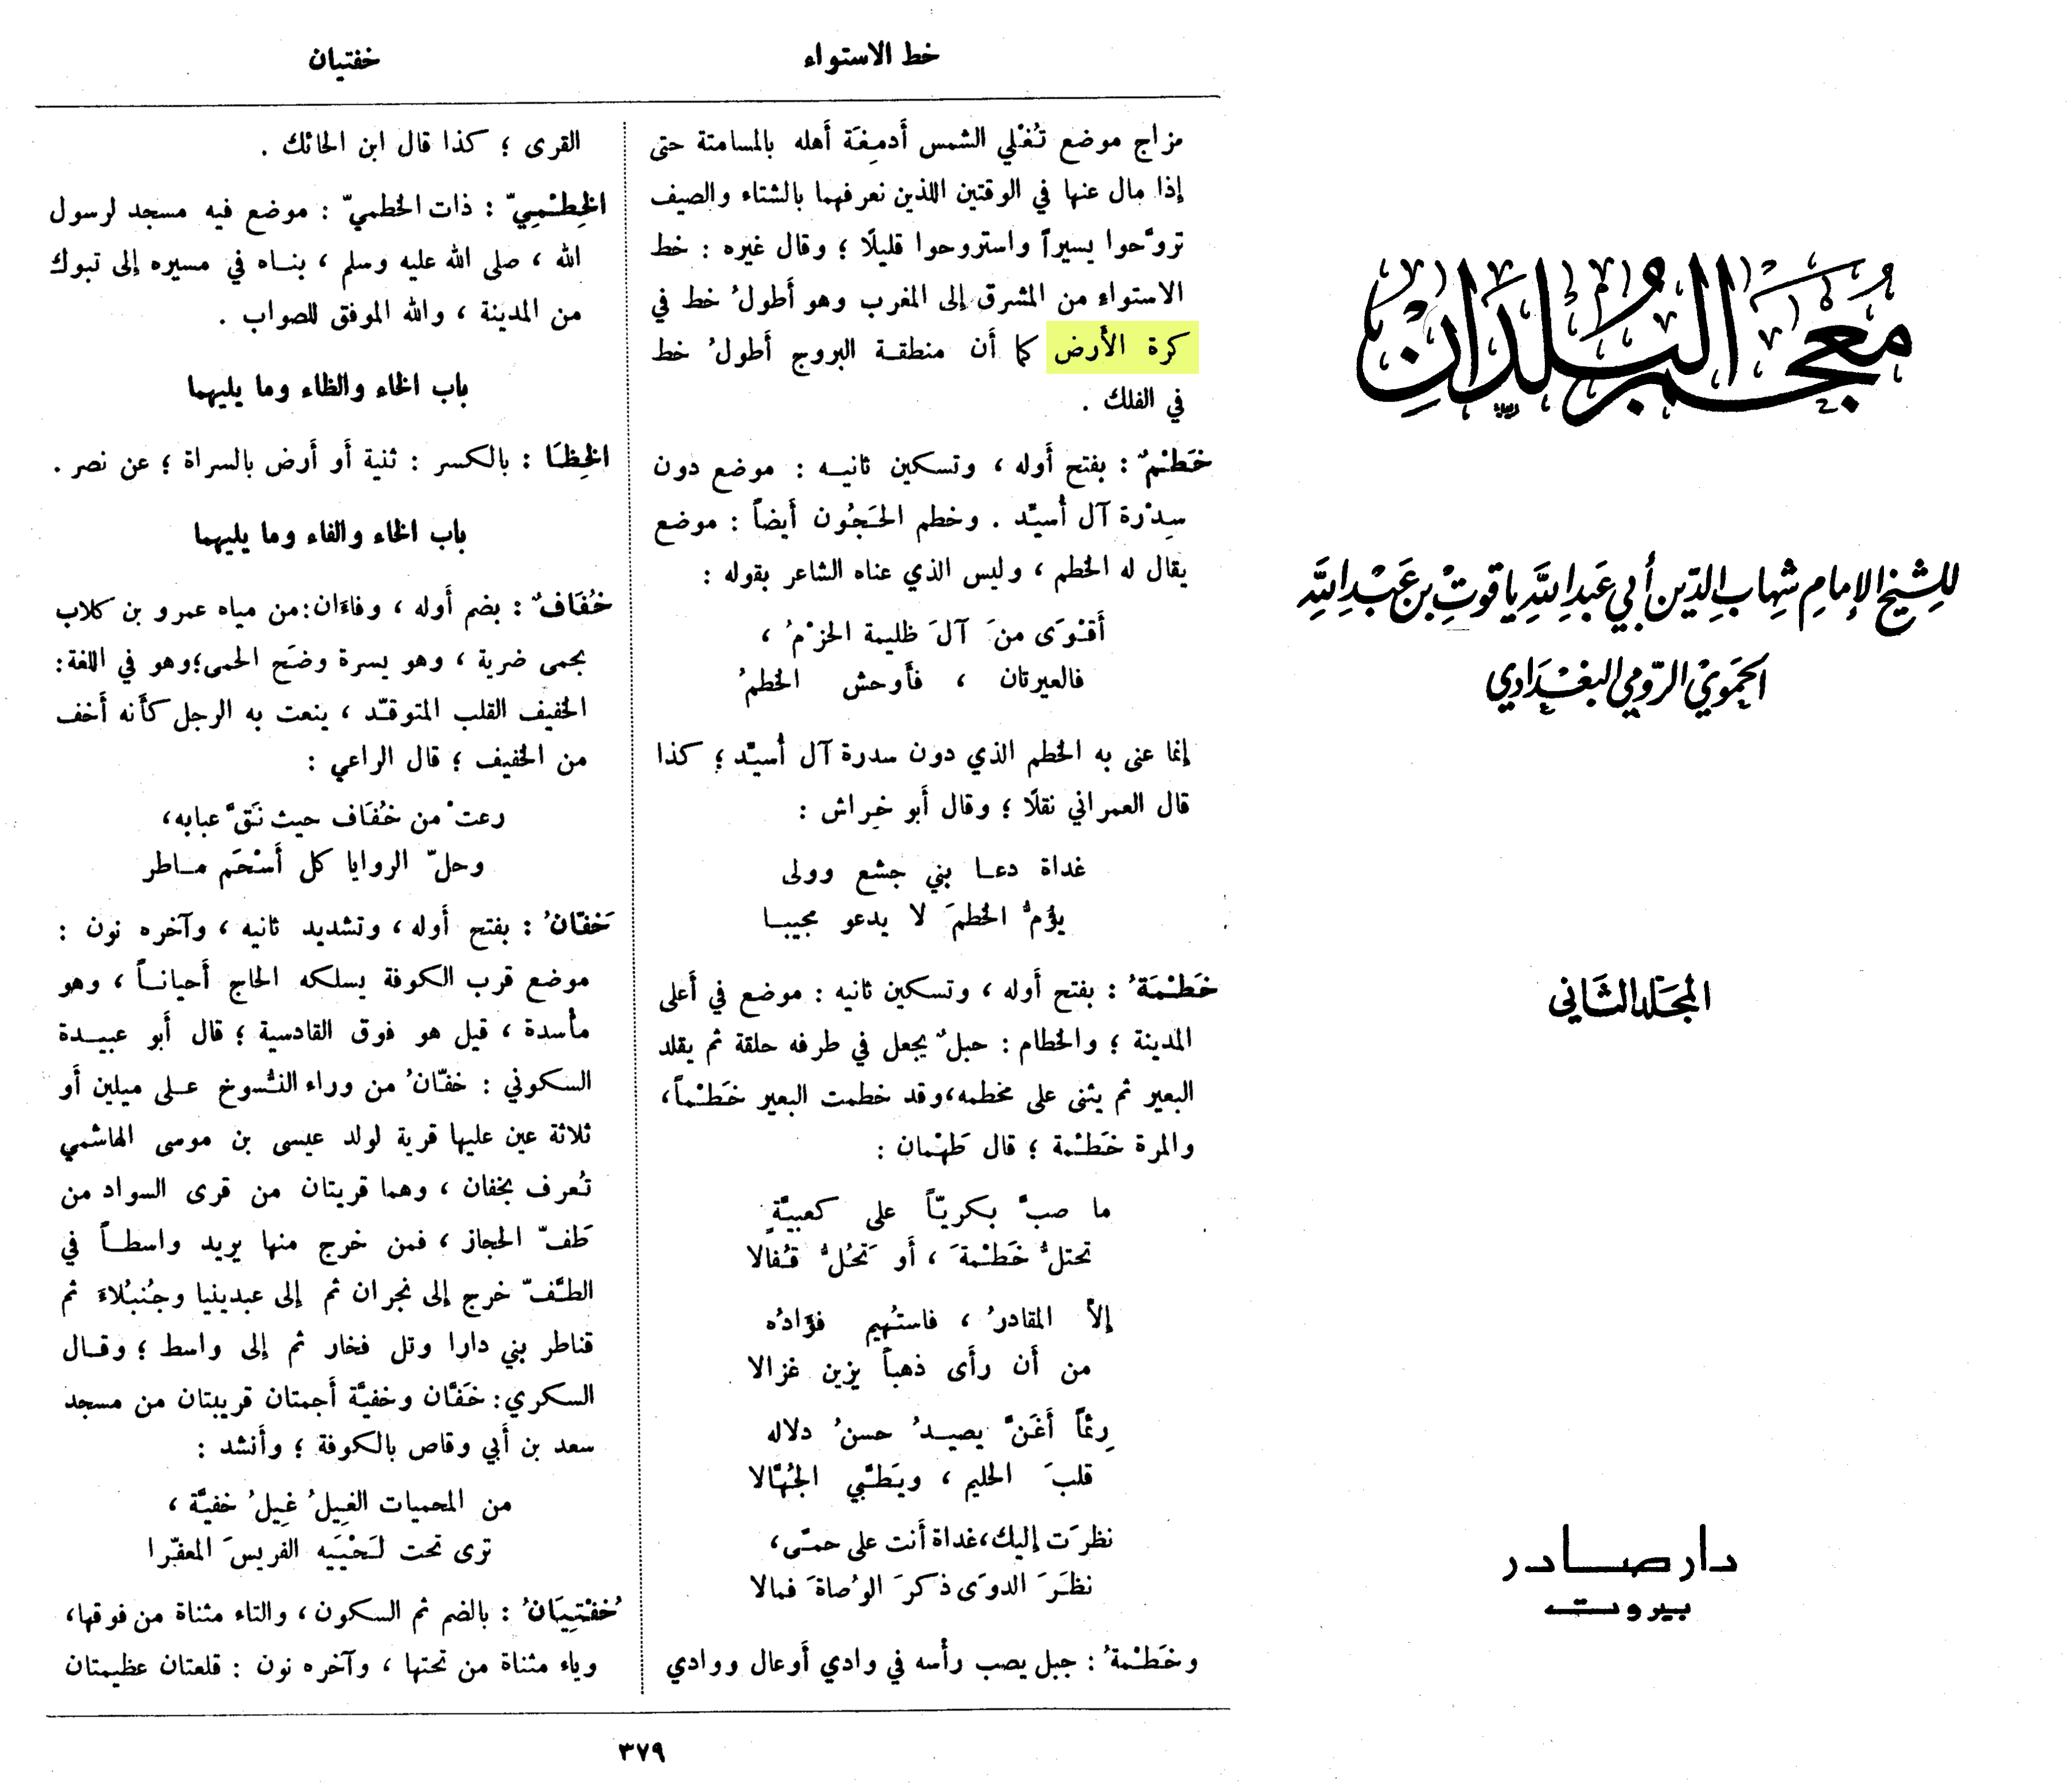 معجم البلدان
للشيخ الإمام شهاب الدين أبي عبد الله ياقوت بن عبد الله
الحموي الرومي البغدادي
المجلد الثاني
دار صادر
بيروت
خط الاستواء
خفتيان
مزاج موضع تُغْلي الشمس أَدمغَة أَهله بالمسامتة حتى
إذا مال عنها في الوقتين اللذين نعرفهما بالشتاء والصيف
تروَّحوا يسيراً واستروحوا قليلًا ؛ وقال غيره : خط
الاستواء من المشرق إلى المغرب وهو أَطولُ خط في
كرة الأَرض كما أَن منطقة البروج أَطولُ خط
في الفلك .
خَطْمٌ : بفتح أَوله ، وتسكين ثانيه : موضع دون
سِدْرة آل أُسيِّد . وخطم الحَجُون أَيضاً : موضع
يقال له الخطم ، وليس الذي عناه الشاعر بقوله :
أَقْوَى منَ آلَ ظليمة الحزْمُ ،
فالعيرتان ، فأَوحش الخطمُ
إنما عنى به الخطم الذي دون سدرة آل أُسيِّد ؛ كذا
قال العمراني نقلًا ؛ وقال أَبو خِراش :
غداة دعا بني جشع وولى
يؤمُّ الخطمَ لا يدعو مجيبا
خَطْمَةُ : بفتح أَوله ، وتسكين ثانيه : موضع في أَعلى
المدينة ؛ والخطام : حبلٌ يجعل في طرفه حلقة ثم يقلد
البعير ثم يثنى على مخطمه، وقد خطمت البعير خَطْماً،
والمرة خَطْمة ؛ قال طَهْمان :
ما صبَّ بكريّاً على كعبيَّةٍ
تحتلُّ خَطْمةَ ، أَو تَحُلُّ قُفالا
إلاَّ المقادرُ ، فاستُهيم فؤادُه
من أَن رأَى ذهباً يزين غزالا
رِئماً أَغَنَّ يصيدُ حسنُ دلاله
قلبَ الحليم ، ويَطَّبي الجُهَّالا
نظرَت إليك، غداة أَنت على حمىً،
نظَرَ الدوَى ذكرَ الوُصاةَ فمالا
وخَطْمةُ : جبل يصب رأْسه في وادي أَوعال ووادي
القرى ؛ كذا قال ابن الحائك .
الخِطْمِيّ : ذات الخطميّ : موضع فيه مسجد لرسول
الله ، صلى الله عليه وسلم ، بناه في مسيره إلى تبوك
من المدينة ، والله الموفق للصواب .
باب الخاء والظاء وما يليهما
الخِظَا : بالكسر : ثنية أَو أَرض بالسراة ؛ عن نصر .
باب الخاء والفاء وما يليهما
خُفَافٌ : بضم أَوله ، وفاءَان: من مياه عمرو بن كلاب
بحمى ضرية ، وهو يسرة وضَح الحمى؛ وهو في اللغة:
الخفيف القلب المتوقّد ، ينعت به الرجل كأَنه أَخف
من الخفيف ؛ قال الراعي :
رعتْ من خُفَاف حيث نَقَّ عبابه،
وحلّ الروايا كل أَسْحَم ماطر
خَفّانُ : بفتح أَوله ، وتشديد ثانيه ، وآخره نون :
موضع قرب الكوفة يسلكه الحاج أَحياناً ، وهو
مأْسدة ، قيل هو فوق القادسية ؛ قال أَبو عبيدة
السكوني : خفّانُ من وراء النُّسوخ على ميلين أَو
ثلاثة عين عليها قرية لولد عيسى بن موسى الهاشمي
تُعرف بخفان ، وهما قريتان من قرى السواد من
طَفّ الحجاز ، فمن خرج منها يريد واسطاً في
الطَّفّ خرج إلى نجران ثم إلى عبدينيا وجُنبُلاءَ ثم
قناطر بني دارا وتل فخار ثم إلى واسط ؛ وقال
السكري: خَفّان وخفيَّة أَجمتان قريبتان من مسجد
سعد بن أَبي وقاص بالكوفة ؛ وأَنشد :
من المحميات الغِيلُ غِيلُ خفيَّة ،
ترى تحت لَحْيَيه الفريسَ المعفّرا
خُفْتِيَانُ : بالضم ثم السكون ، والتاء مثناة من فوقها،
وياء مثناة من تحتها ، وآخره نون : قلعتان عظيمتان
٣٧٩